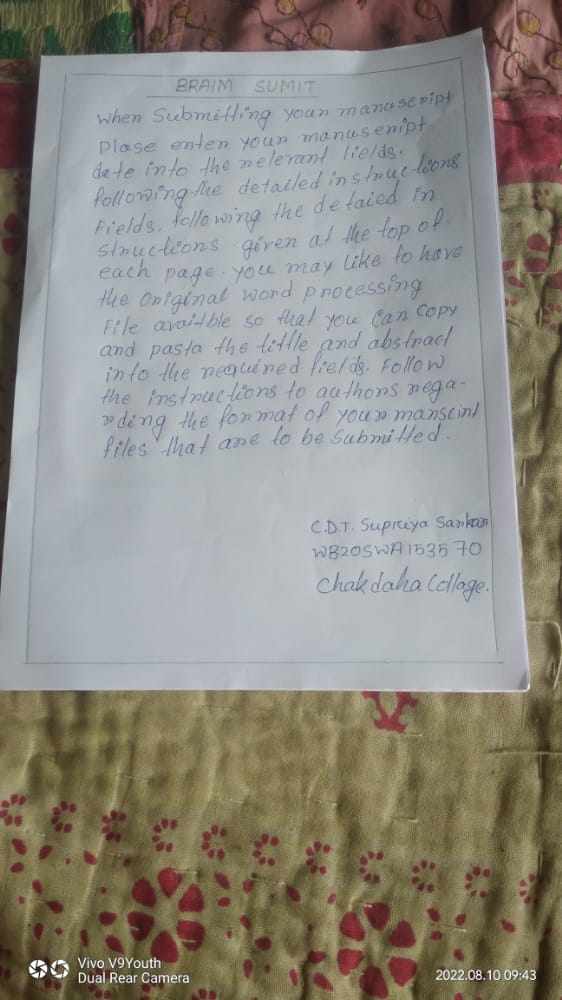 BRAIM SUMIT
When Submitting your manuscript
Plase enter your manuscript
dete into the relerant lields.
following the detailed instructions
Fields. following the detaied in
structions given at the top of
each page. you may like to have
the Original word processing
File avaitble so that you can copy
and pasta the tittle and abstract
into the required fields. Follow
the instructions to authors rega-
rding the format of your manscint
files that are to be submitted.
C.D.T. Supriya Sarkar
WB20SWA153570
Chakdaha Collage.
Vivo V9Youth
Dual Rear Camera
2022.08.10 09:43